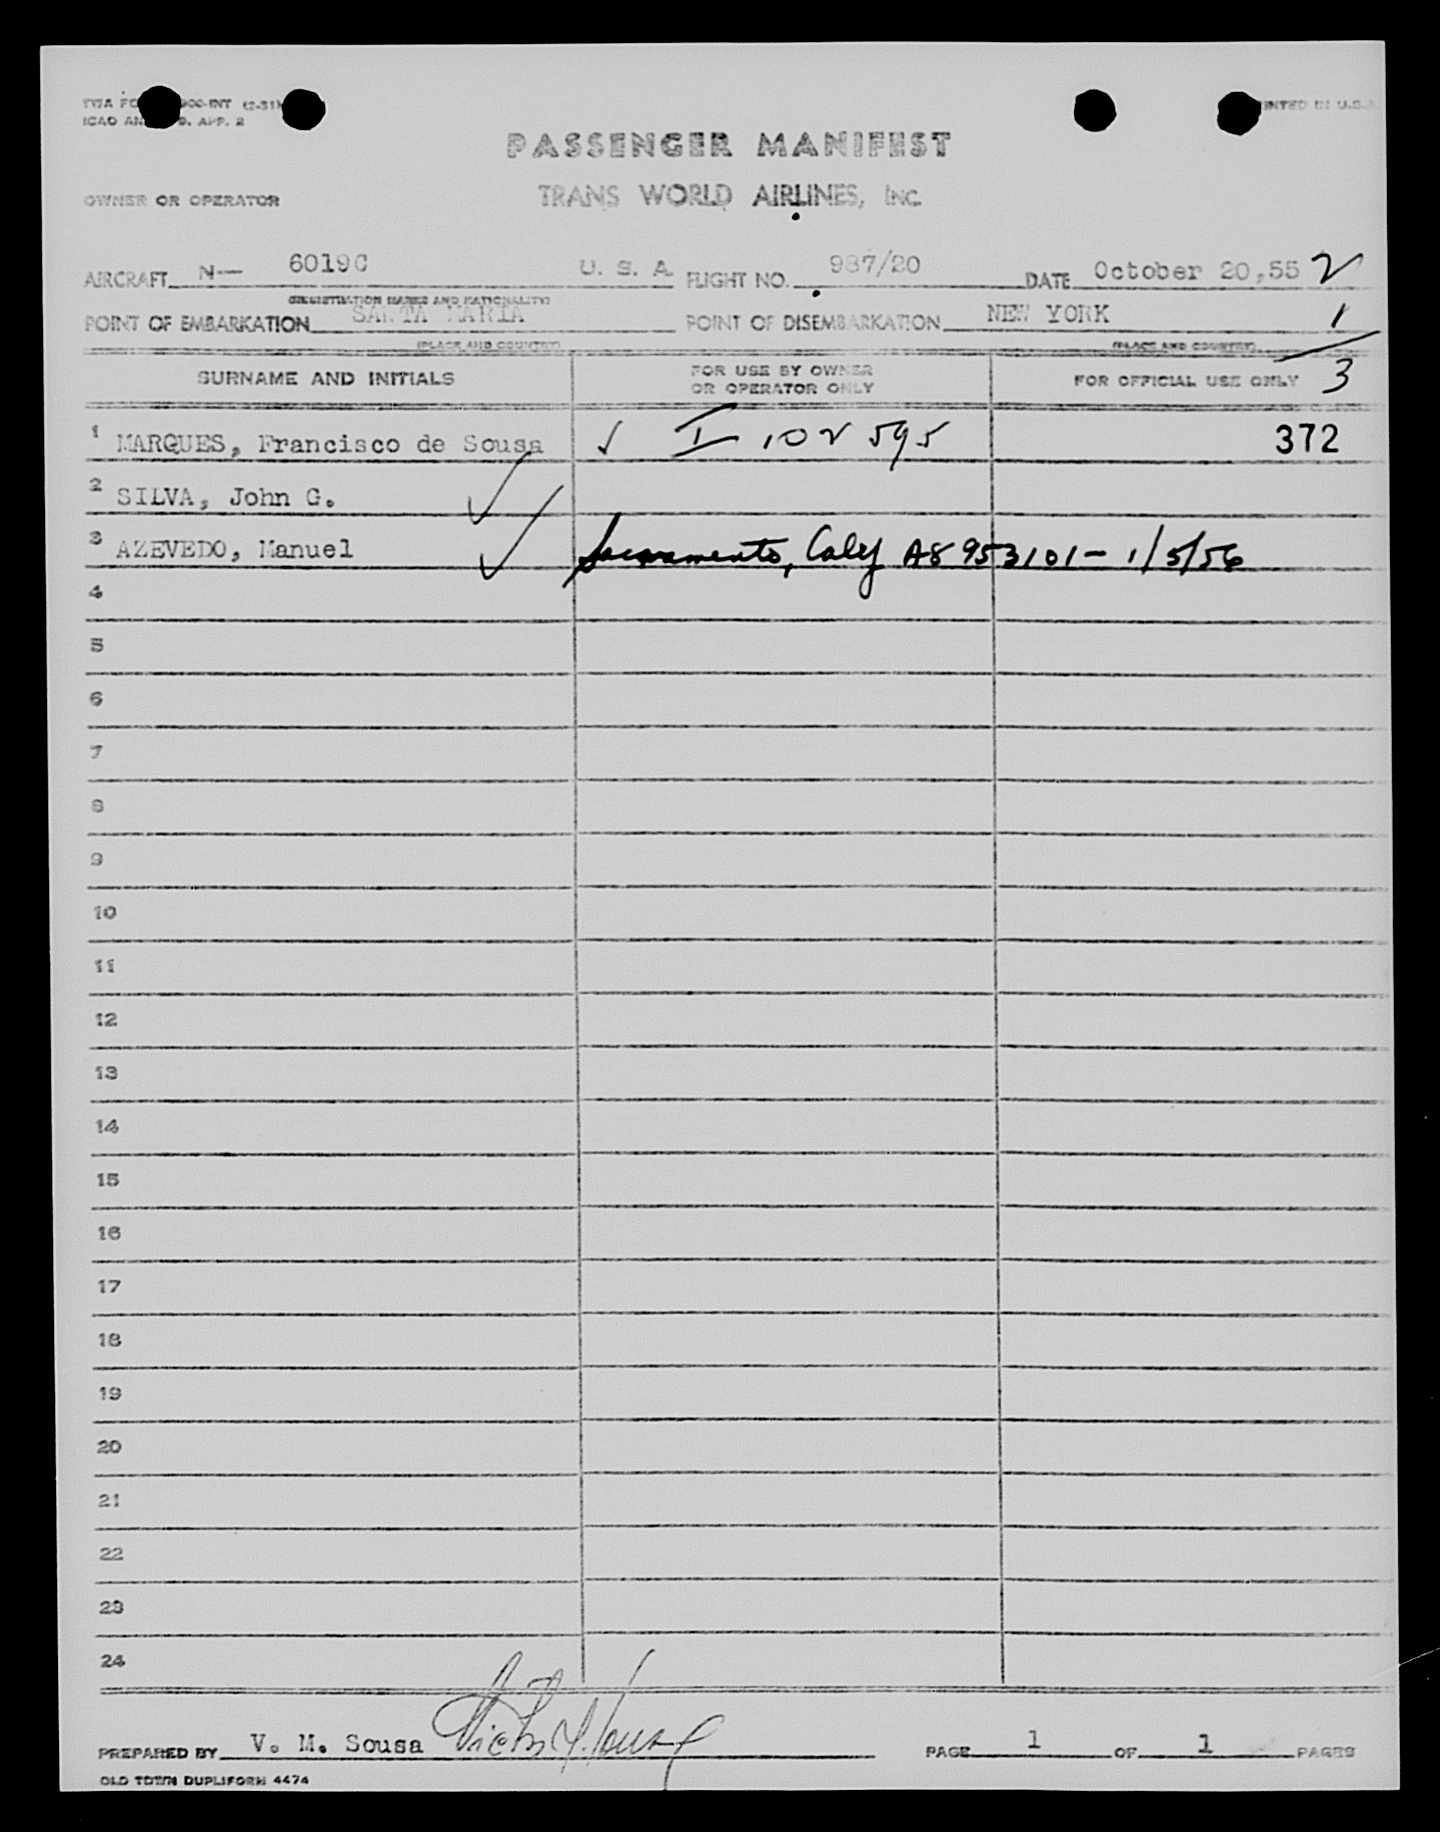 TWA FO 900-INT (2-51)
INTED IN U.S.
ICAO AN 9. APP. 2
PASSENGER MANIFEST
OWNER OR OPERATOR TRANS WORLD AIRLINES, INC.
AIRCRAFT N— 6019C U. S. A. FLIGHT NO. 987/20 DATE October 20,55 2
(REGISTRATION MARKS AND NATIONALITY)
POINT OF EMBARKATION SANTA MARIA POINT OF DISEMBARKATION NEW YORK 1
(PLACE AND COUNTRY) (PLACE AND COUNTRY)
SURNAME AND INITIALS FOR USE BY OWNER OR OPERATOR ONLY FOR OFFICIAL USE ONLY 3
1 MARQUES, Francisco de Sousa ✓ I 102 595 372
2 SILVA, John G. ✓
3 AZEVEDO, Manuel ✓ Sacramento, Calif A8 953101 - 1/5/56
4
5
6
7
8
9
10
11
12
13
14
15
16
17
18
19
20
21
22
23
24
PREPARED BY V. M. Sousa PAGE 1 OF 1 PAGES
OLD TOWN DUPLIFORM 4474